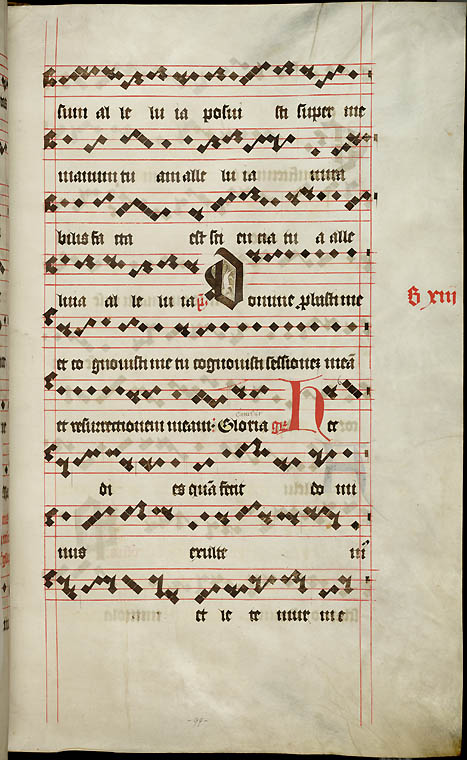 sum al le lu ia posui sti super me
manum tu am alle lu ia mira
bilis fa cta est sci en cia tu a alle
luia al le lu ia ps Domine probasti me
G xiii
et co gnovisti me tu cognovisti sessionem meã
et resurrectionem meam: Gloria gr̃ Hec
di es quã fecit do mi
nus exulte m9
et le te mur in e
-99-